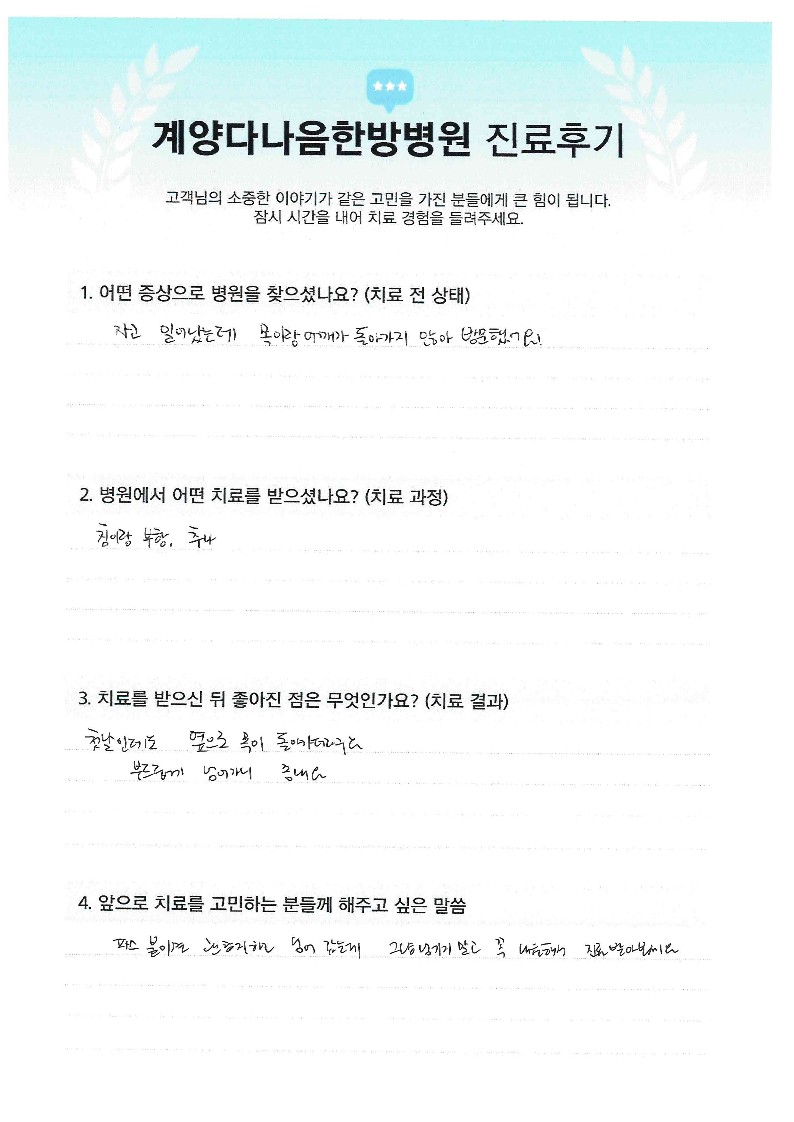 계양다나음한방병원 진료후기
고객님의 소중한 이야기가 같은 고민을 가진 분들에게 큰 힘이 됩니다.
잠시 시간을 내어 치료 경험을 들려주세요.
1. 어떤 증상으로 병원을 찾으셨나요? (치료 전 상태)
자고 일어났는데 목이랑 어깨가 돌아가지 않아 방문했어요!
2. 병원에서 어떤 치료를 받으셨나요? (치료 과정)
침이랑 부항, 추나
3. 치료를 받으신 뒤 좋아진 점은 무엇인가요? (치료 결과)
첫날인데도 옆으로 목이 돌아가더라구요
부드럽게 넘어가니 좋네요
4. 앞으로 치료를 고민하는 분들께 해주고 싶은 말씀
파스 붙이면 넘어 갔는데 그냥 넘기지 말고 꼭 내원해서 진료 받아보세요